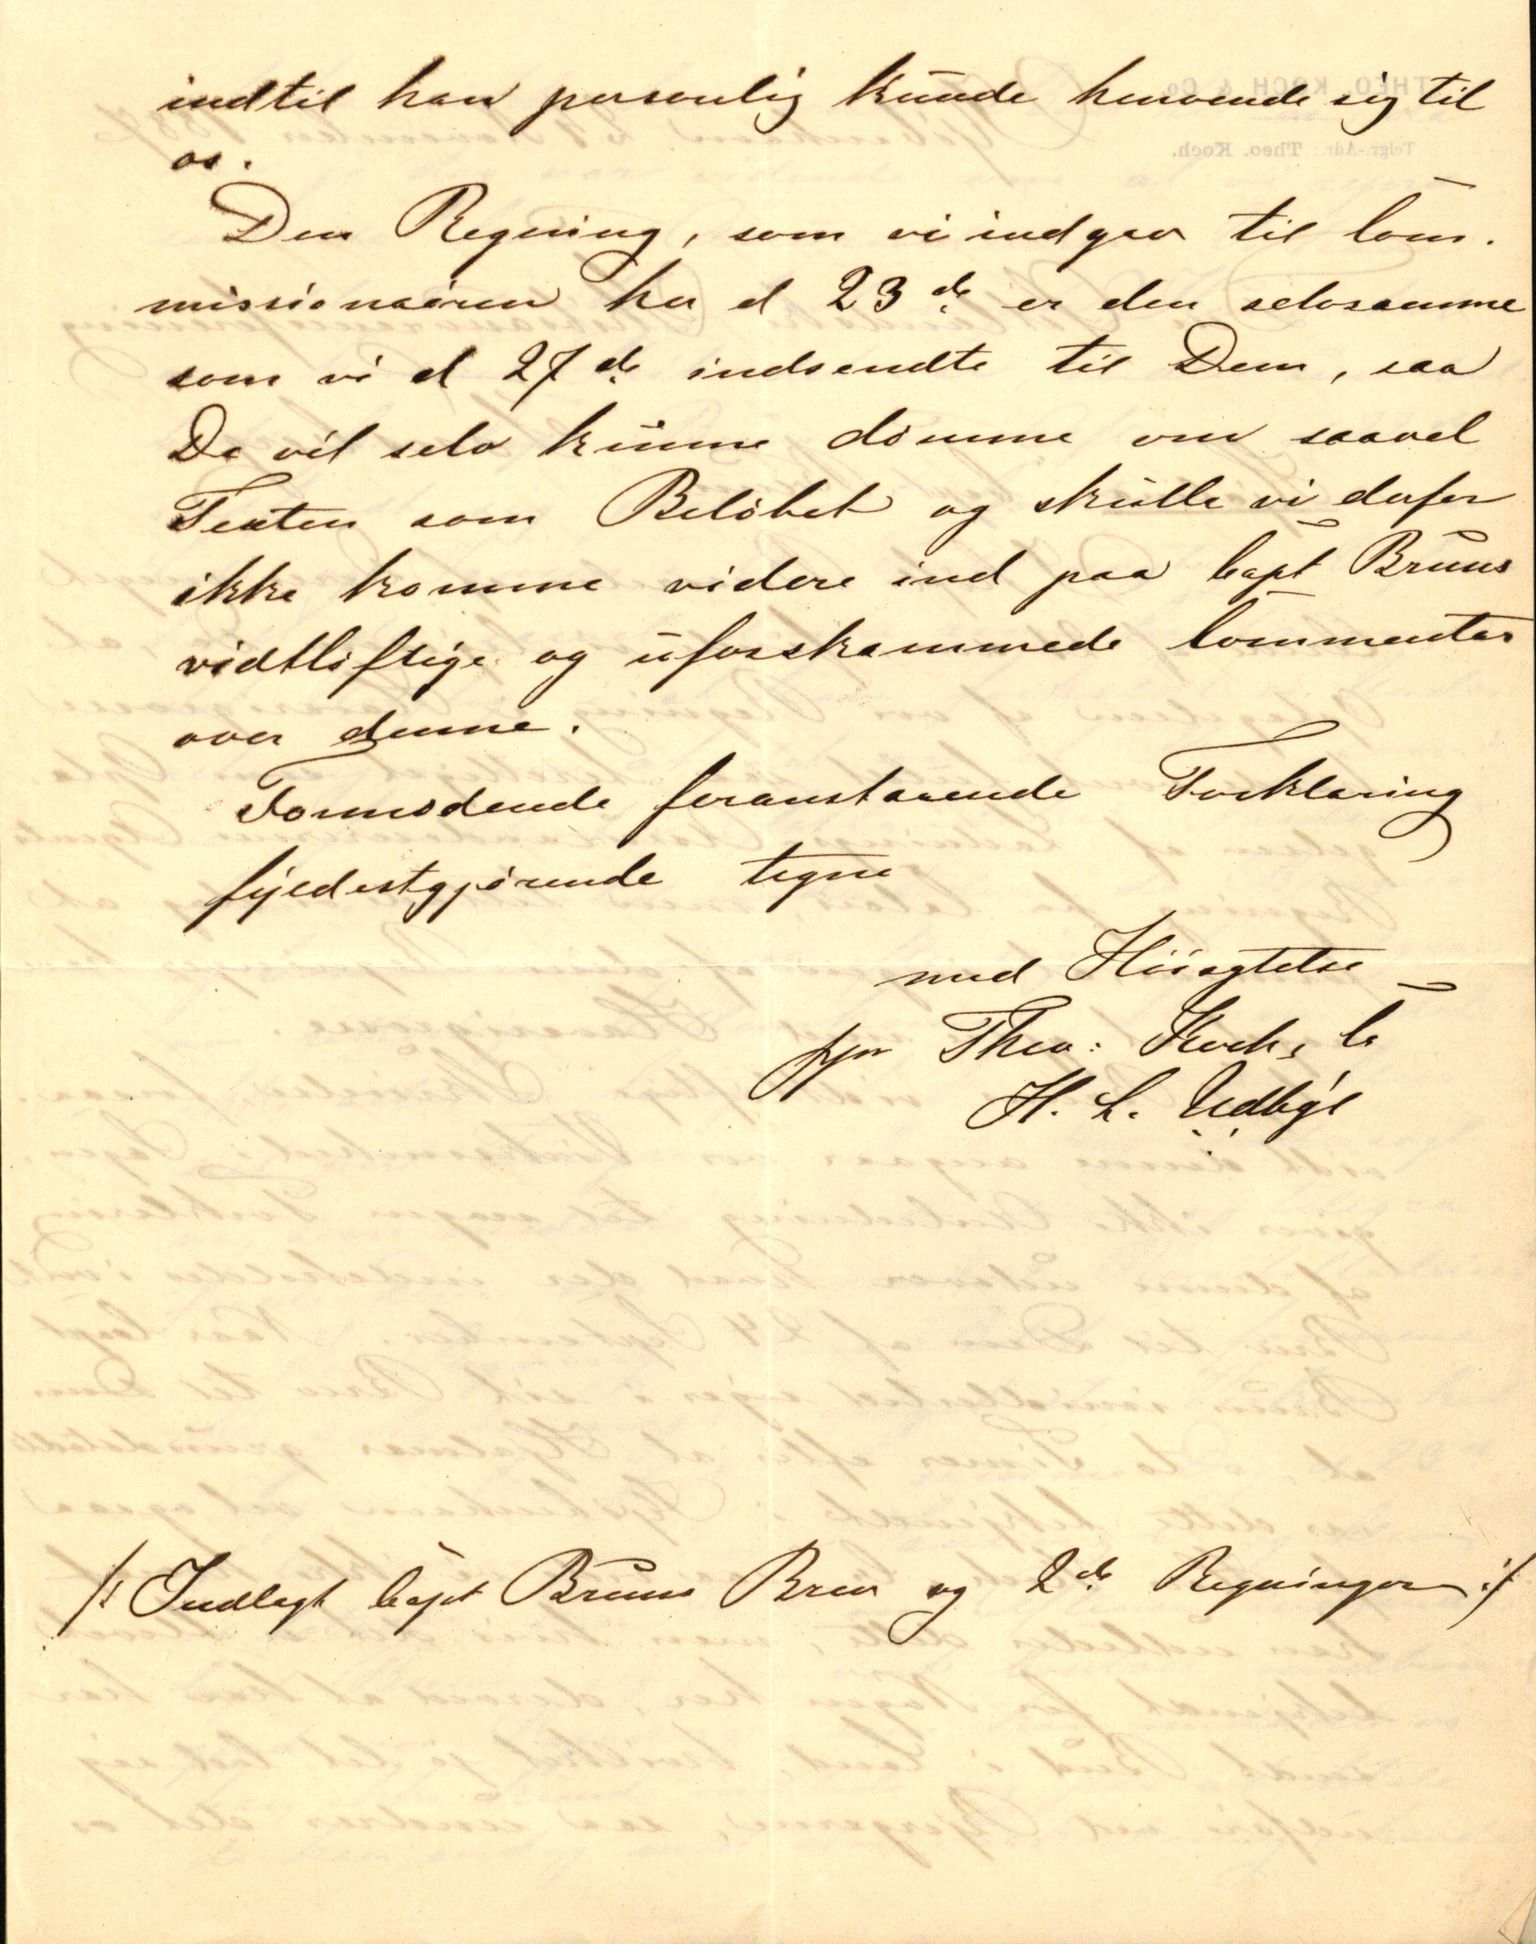 indtil han personlig kunde henvende sig til
os.
Den Regning, som vi indgav til Com-
missionairen her d 23de er den selvsamme
som vi d 27de indsendte til Dem, saa
De vil selv kunne dömme om saavel
Texten som Belöbet og skulle vi derfor
ikke komme videre ind paa Capt Bruns
vidtløftige og uforskammede Commentar
over denne.
Formodende foranstaaende Forklaring
fyldestgjørende tegne
med Höiagtelse
ppr Theo: Koch & Co
H. L.
/: Indlagt Capt Bruns Brev og 2de Regninger :/